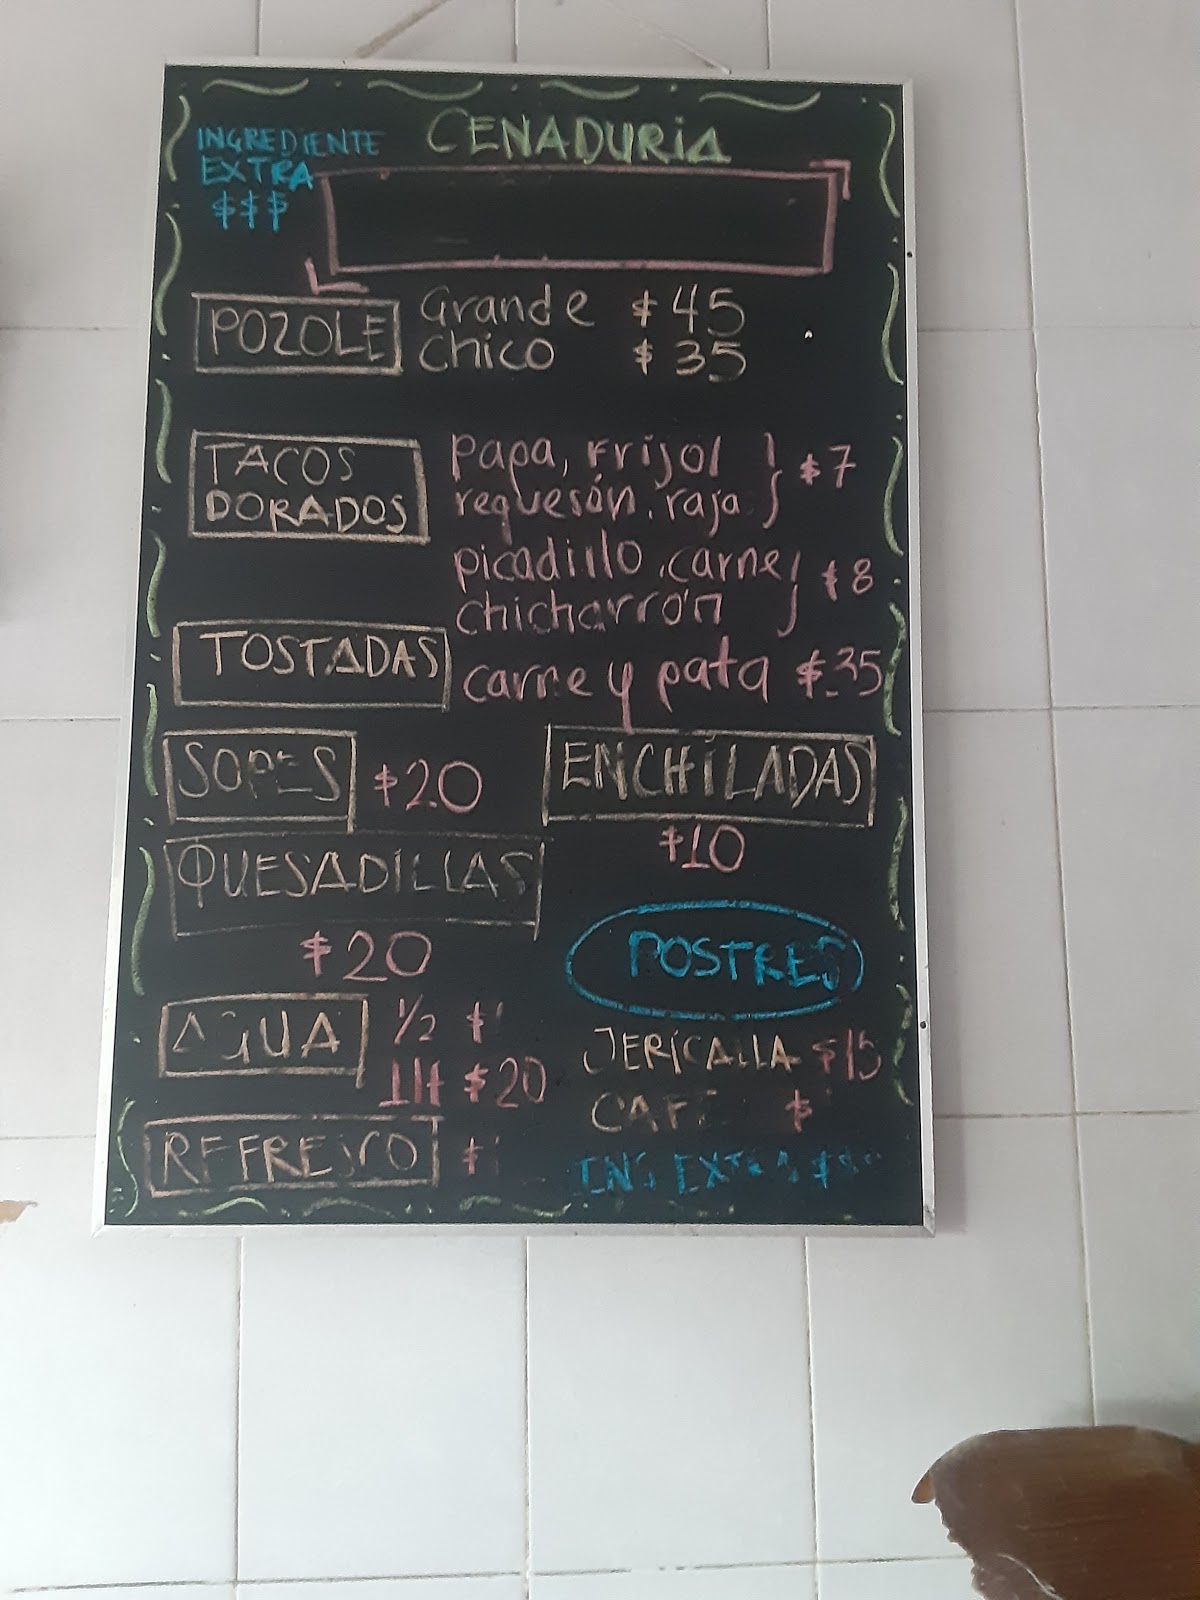 CENADURIA
INGREDIENTE
EXTRA
$$$
POZOLE
Grande $45
Chico $35
TACOS
DORADOS
papa, Frijol
requesón, raja } $7
picadillo, carne
chicharrón } $8
TOSTADAS
carne y pata $35
SOPES $20
ENCHILADAS
$10
QUESADILLAS
$20
POSTRES
JERICALLA $15
CAFE $
ING EXTRA
AGUA
1/2 $
1lt $20
REFRESCO $